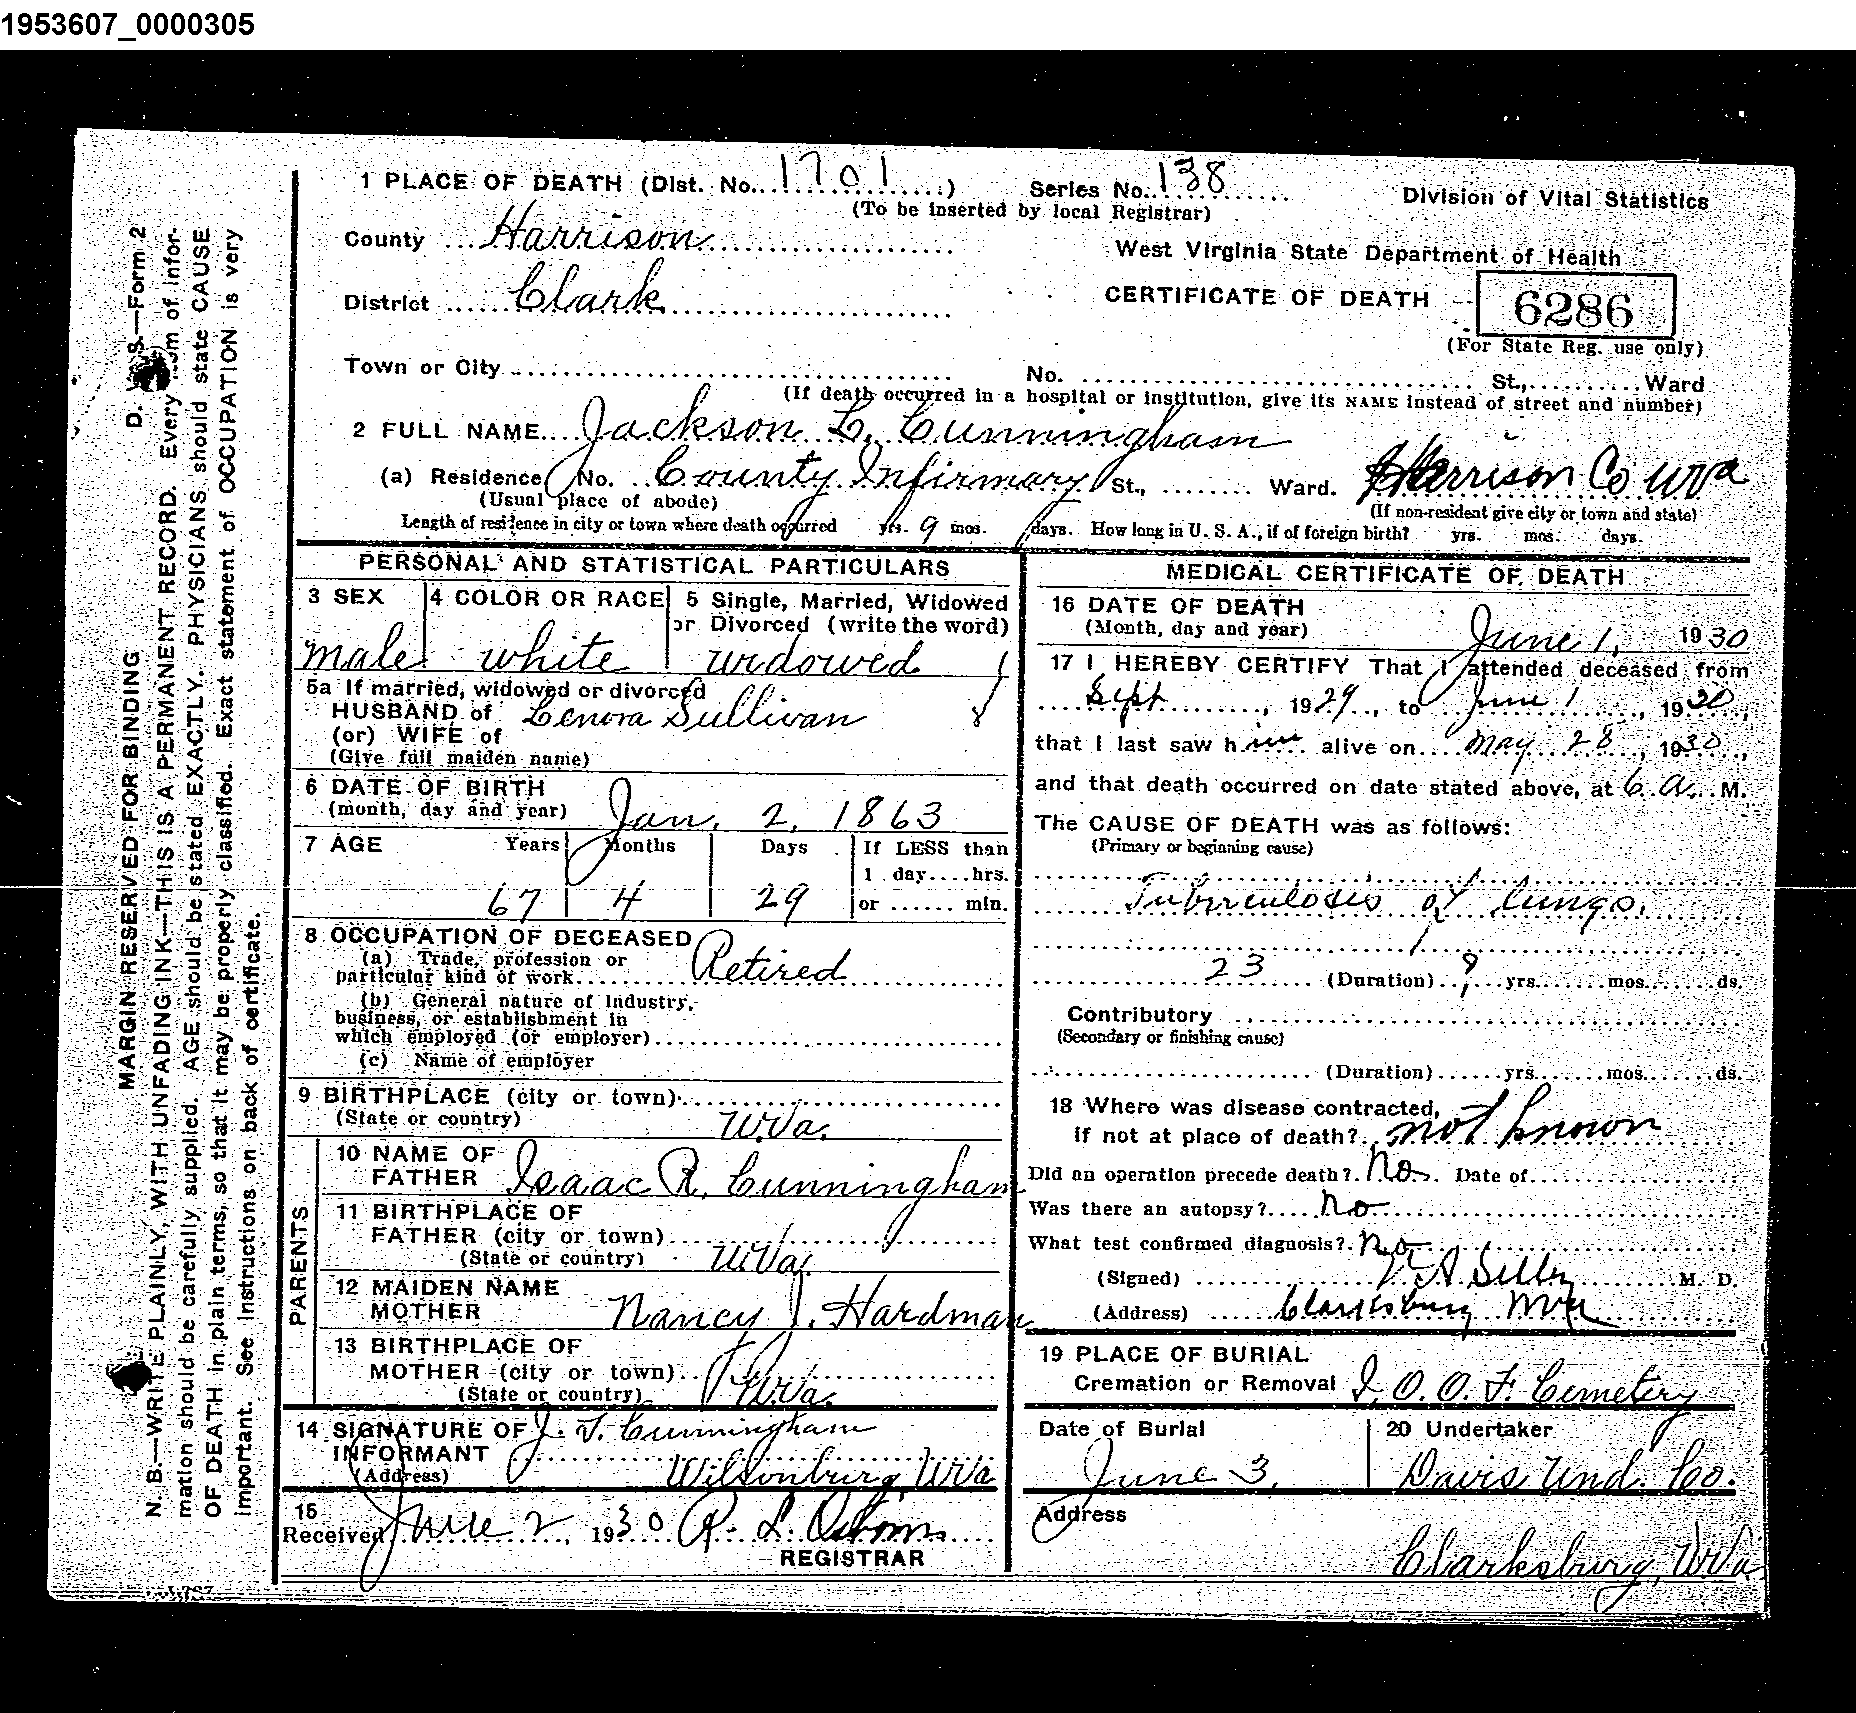 1953607_0000305
1 PLACE OF DEATH (Dist. No. 1701) Series No. 138 Division of Vital Statistics
(To be inserted by local Registrar)
County Harrison West Virginia State Department of Health
District Clark CERTIFICATE OF DEATH 6286
(For State Reg. use only)
Town or City No. St., Ward
(If death occurred in a hospital or institution, give its NAME instead of street and number)
2 FULL NAME Jackson L. Cunningham
(a) Residence No. County Infirmary St., Ward. Harrison Co WVa
(Usual place of abode) (If non-resident give city or town and state)
Length of residence in city or town where death occurred yrs. 9 mos. days. How long in U. S. A., if of foreign birth? yrs. mos. days.
PERSONAL AND STATISTICAL PARTICULARS
3 SEX 4 COLOR OR RACE 5 Single, Married, Widowed
or Divorced (write the word)
male white widowed
5a If married, widowed or divorced
HUSBAND of Lenora Sullivan
(or) WIFE of
(Give full maiden name)
6 DATE OF BIRTH
(month, day and year) Jan. 2, 1863
7 AGE Years Months Days If LESS than
1 day....hrs.
67 4 29 or ...... min.
8 OCCUPATION OF DECEASED
(a) Trade, profession or
particular kind of work Retired
(b) General nature of Industry,
business, or establishment in
which employed (or employer)
(c) Name of employer
9 BIRTHPLACE (city or town)
(State or country) W.Va.
PARENTS
10 NAME OF
FATHER Isaac R. Cunningham
11 BIRTHPLACE OF
FATHER (city or town)
(State or country) WVa.
12 MAIDEN NAME
MOTHER Nancy J. Hardman
13 BIRTHPLACE OF
MOTHER (city or town)
(State or country) WVa.
14 SIGNATURE OF J. T. Cunningham
INFORMANT
(Address) Wilsonburg, WVa
15
Received June 2, 1930 R. L. Osborn
REGISTRAR
MEDICAL CERTIFICATE OF DEATH
16 DATE OF DEATH
(Month, day and year) June 1, 1930
17 I HEREBY CERTIFY That I attended deceased from
Sept, 1929, to June 1, 1930,
that I last saw him alive on May 28, 1930,
and that death occurred on date stated above, at 6 a. M.
The CAUSE OF DEATH was as follows:
(Primary or beginning cause)
Tuberculosis of lungs.
23 (Duration) ? yrs. mos. ds.
Contributory
(Secondary or finishing cause)
(Duration) yrs. mos. ds.
18 Where was disease contracted,
if not at place of death? not known
Did an operation precede death? No. Date of
Was there an autopsy? No
What test confirmed diagnosis? No
(Signed) A Selby M. D.
(Address) Clarksburg WVa
19 PLACE OF BURIAL
Cremation or Removal I. O. O. F. Cemetery
Date of Burial 20 Undertaker
June 3, Davis Und. Co.
Address
Clarksburg, WVa
D. V. S.—Form 2
MARGIN RESERVED FOR BINDING
N. B.—WRITE PLAINLY, WITH UNFADING INK—THIS IS A PERMANENT RECORD. Every item of infor-
mation should be carefully supplied. AGE should be stated EXACTLY. PHYSICIANS should state CAUSE
OF DEATH in plain terms, so that it may be properly classified. Exact statement of OCCUPATION is very
important. See instructions on back of certificate.